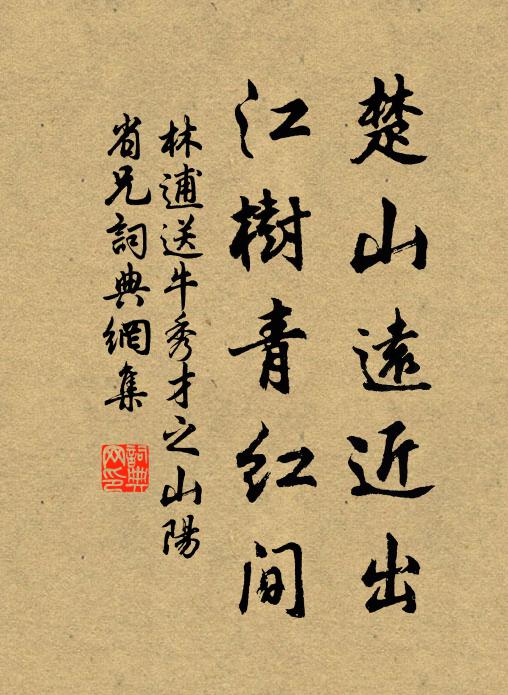 楚山遠近出
江樹青红间
林逋送牛秀才之山陽
省兄詞典網集
詞典网印